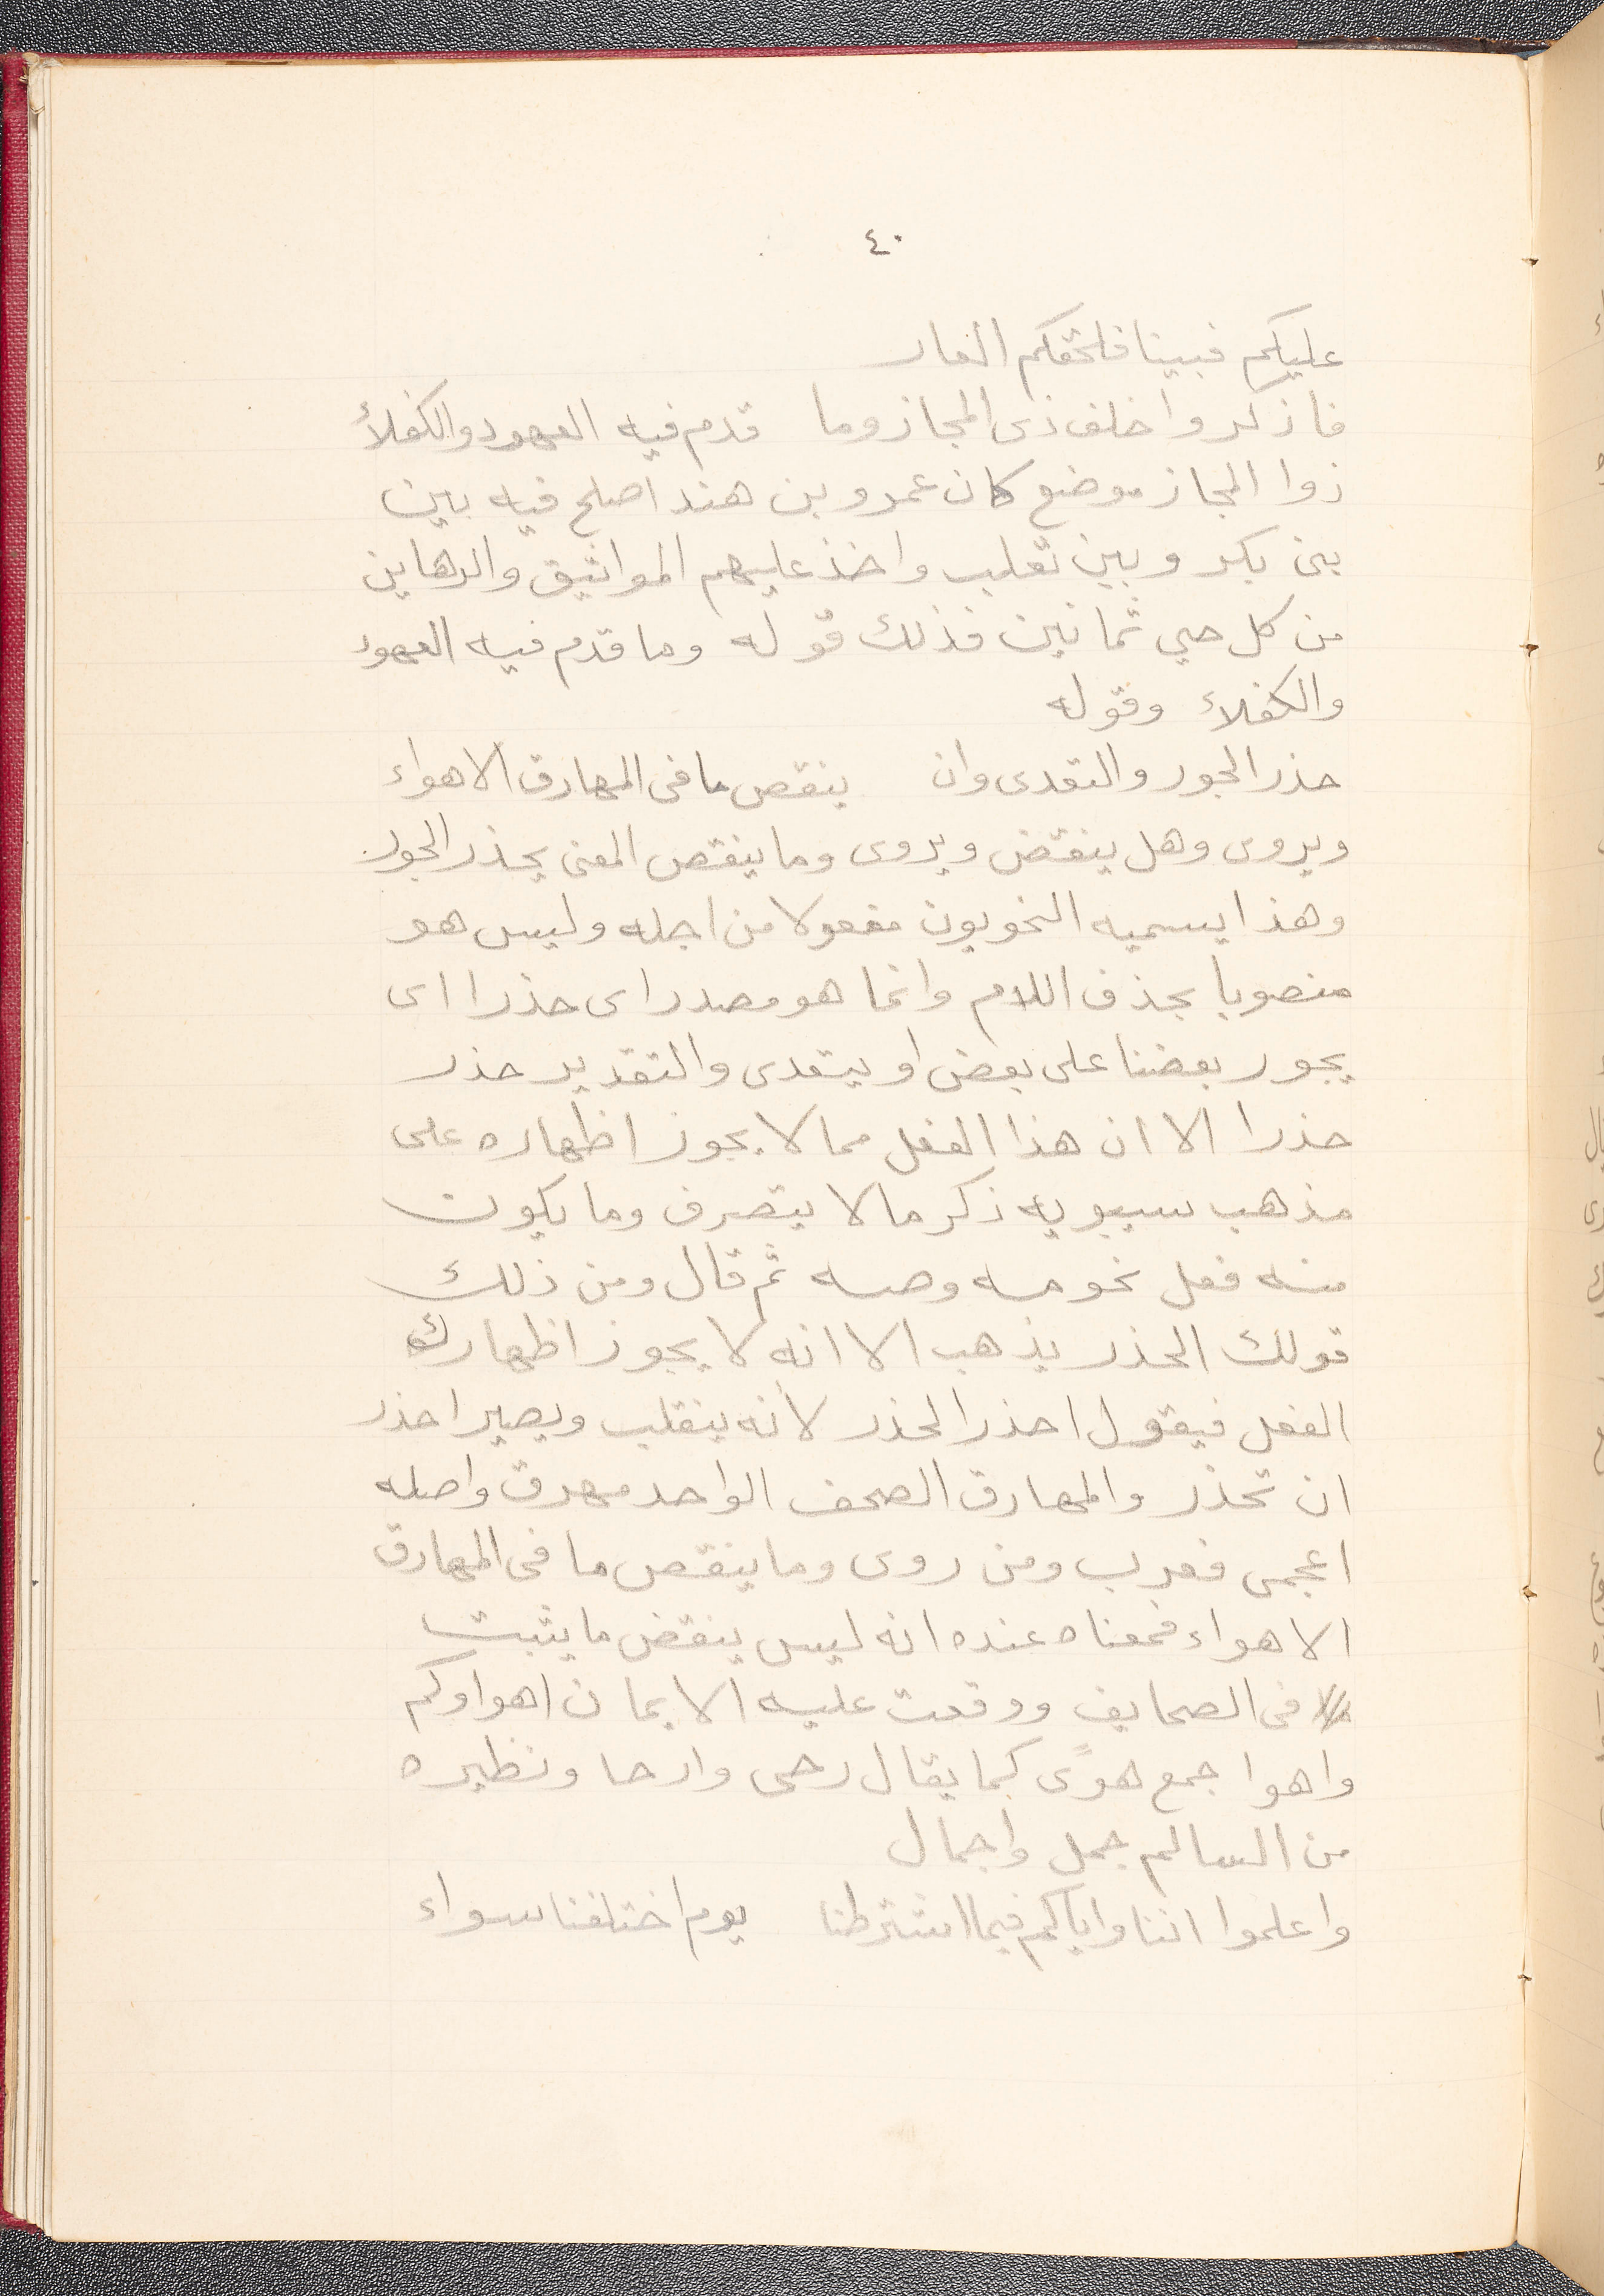 ٤٠
عليكم فبينا فلحقكم العار
فاذكروا خلف ذى المجاز وما قدم فيه العهود والكفلاء
ذوا المجاز موضع كان عمرو بن هند اصلح فيه بين
بنى بكر وبين تغلب واخذ عليهم المواثيق والرهاين
من كل حي ثمانين فذلك قوله وما قدم فيه العهود
والكفلاء وقوله
حذر الجور والتعدى وان ينقص ما فى المهارق الاهواء
ويروى وهل ينقض ويروى وما ينقص المعنى يحذر الجور
وهذا يسميه النحويون مفعولا من اجله وليس هو
منصوبا بحذف اللام وانما هو مصدر اى حذرا اى
يجور بعضنا على بعض او يتعدى والتقدير حذر
حذرا الا ان هذا الفعل مما لا يجوز اظهاره على
مذهب سيبويه ذكر ما لا يتصرف وما يكون
منه فعل نحو مه وصه ثم قال ومن ذلك
قولك الحذر يذهب الا انه لا يجوز اظهارك
الفعل فيقول احذر الحذر لأنه ينقلب ويصير احذر
ان تحذر والمهارق الصحف الواحد مهرق واصله
اعجمى فعرب ومن روى وما ينقص ما فى المهارق
الاهواء فمعناه عنده انه ليس ينقض ما يثبت
فى الصحايف ووقعت عليه الايمان اهواوكم
واهوا جمع هوًى كما يقال رحى وارحا ونظيره
من السالم جمل واجمال
واعلموا اننا واياكم فيما اشترطنا يوم اختلفنا سواء